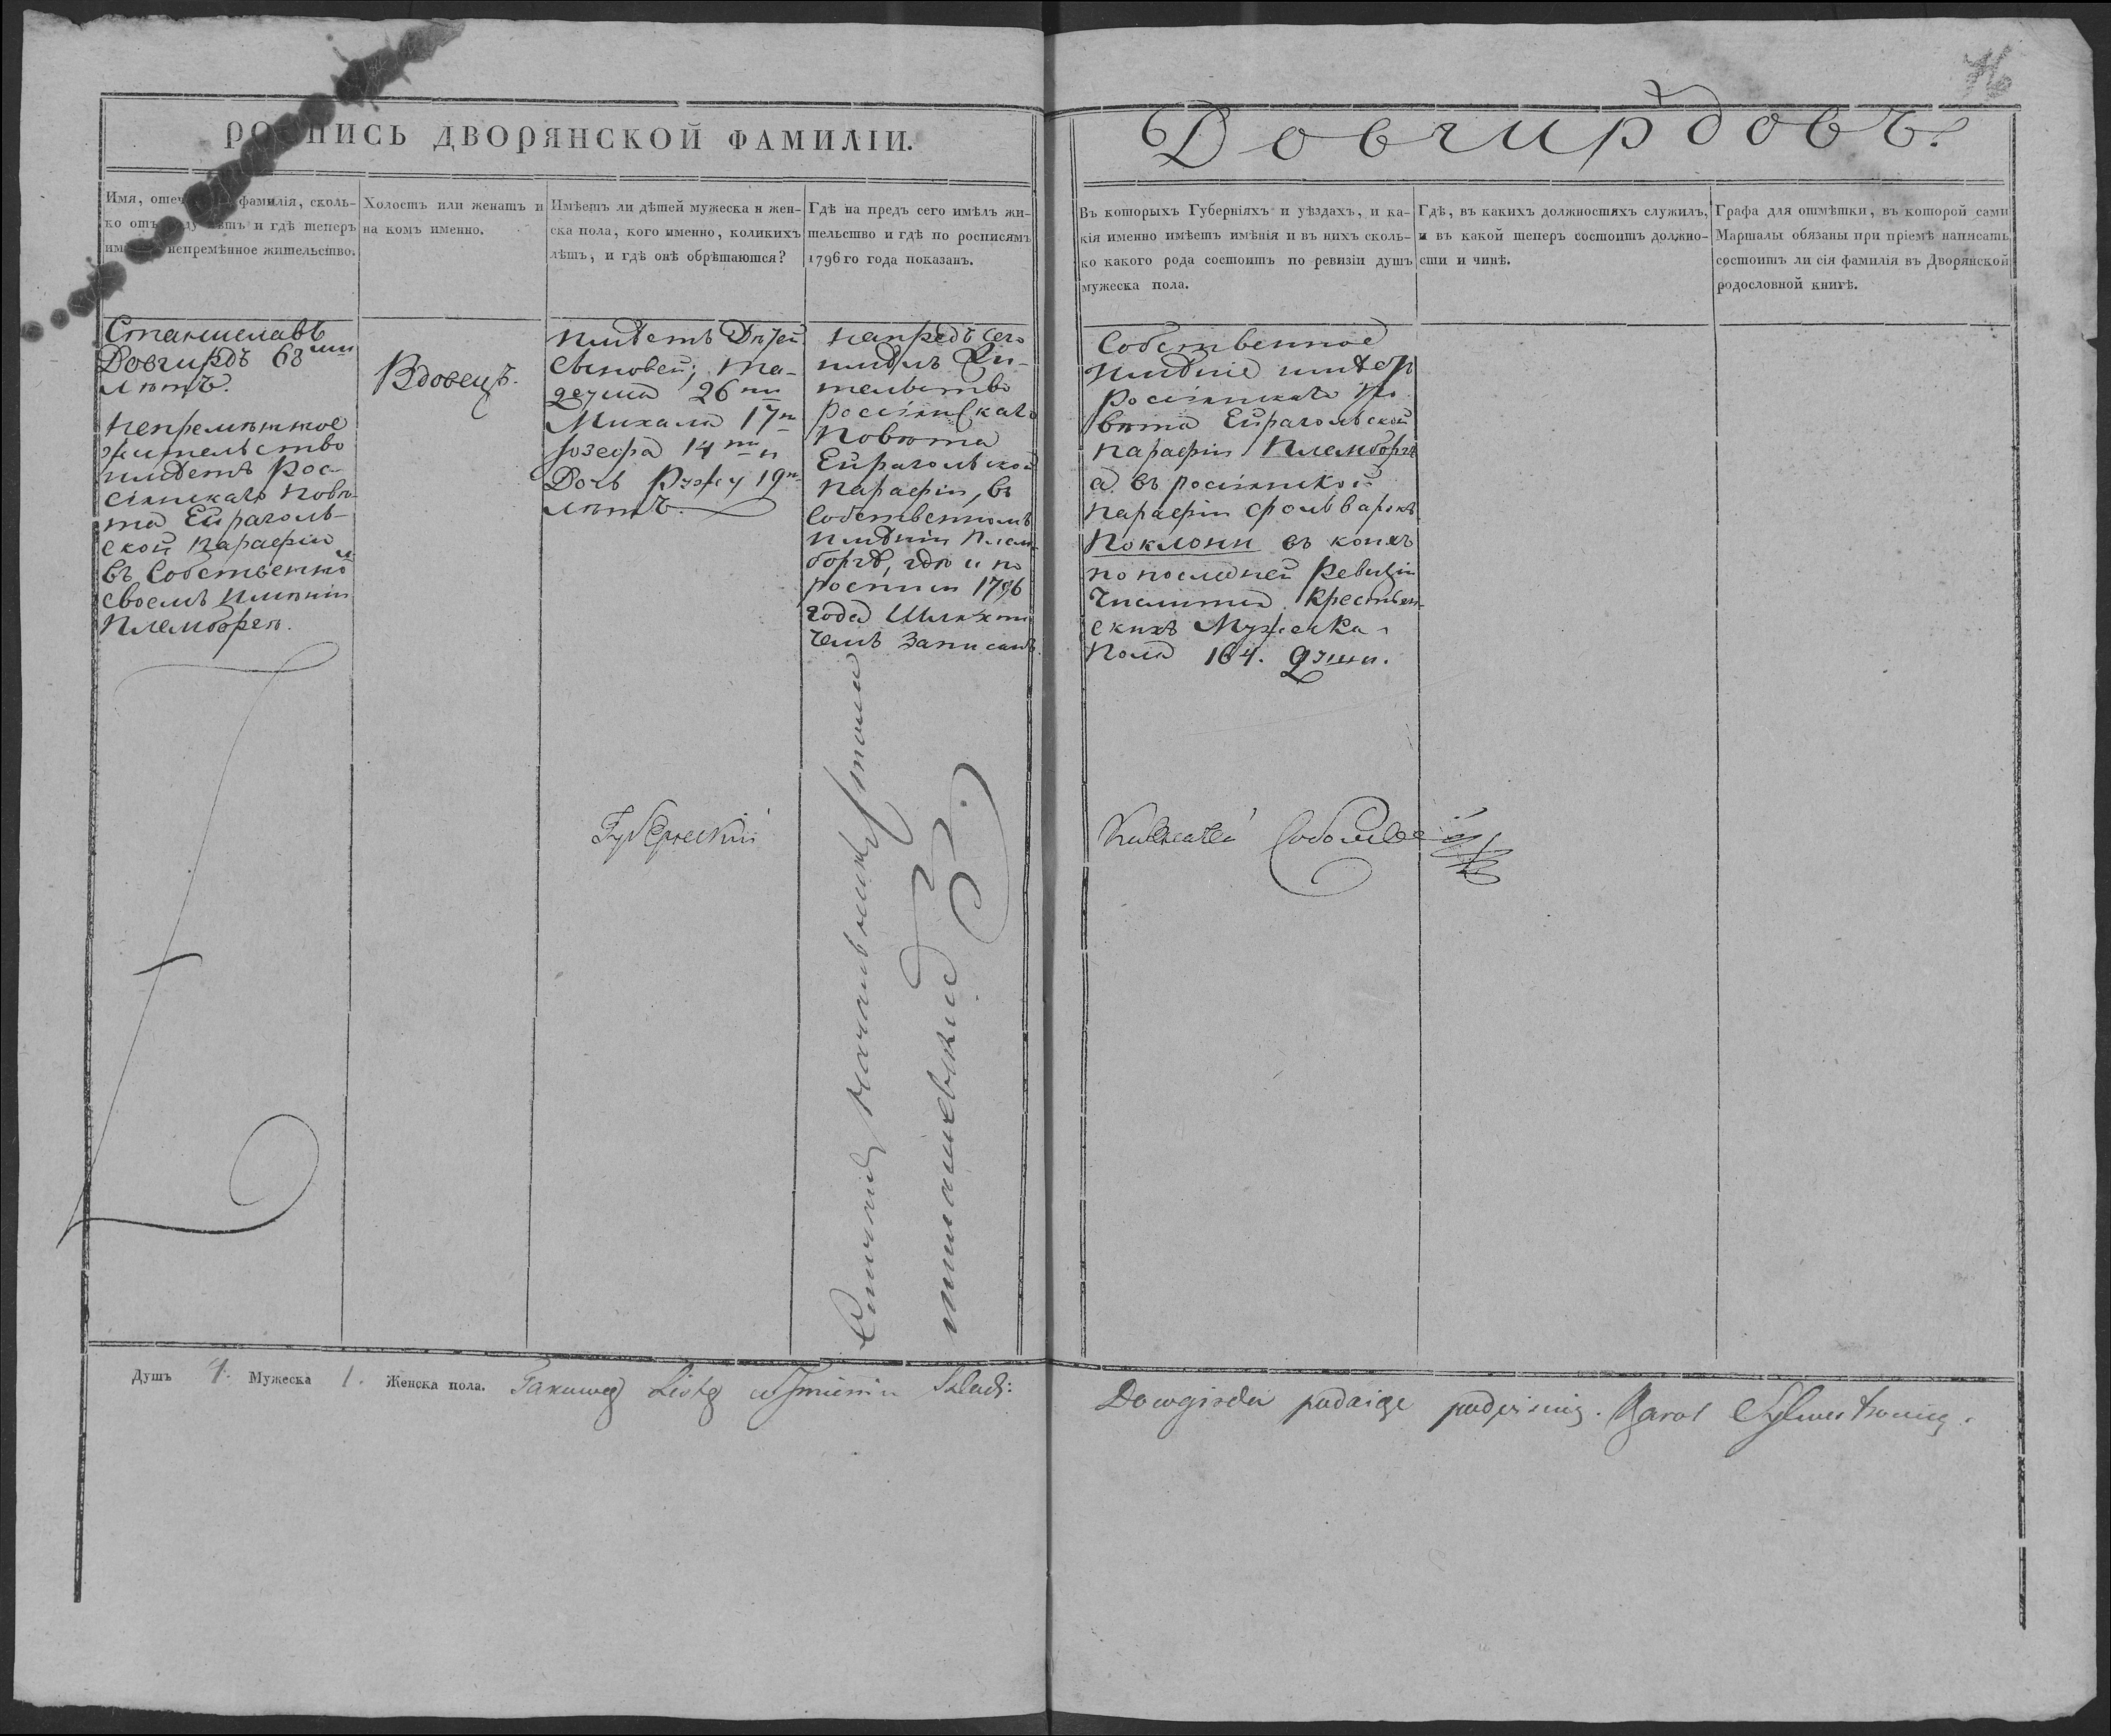 РОСПИСЬ ДВОРЯНСКОЙ ФАМИЛІИ.
Довгирдовъ.
Имя, отеч фамилія, сколь-
ко отъ ду лѣтъ и гдѣ теперъ
им непремѣнное жительство.
Холостъ или женатъ и
на комъ именно.
Имѣетъ ли дѣтей мужеска и жен-
ска пола, кого именно, коликихъ
лѣтъ, и гдѣ онѣ обрѣтаются?
Гдѣ на предъ сего имѣлъ жи-
тельство и гдѣ по росписямъ
1796 го года показанъ.
Въ которыхъ Губерніяхъ и уѣздахъ, и ка-
кія именно имѣетъ имѣнія и въ нихъ сколь-
ко какого рода состоитъ по ревизіи душъ
мужеска пола.
Гдѣ, въ какихъ должностяхъ служилъ,
и въ какой теперъ состоитъ должно-
сти и чинѣ.
Графа для отмѣтки, въ которой сами
Маршалы обязаны при пріемѣ написать,
состоитъ ли сія фамилія въ Дворянской
родословной книгѣ.
Станиславъ
Довгирдъ 68 ми
лѣтъ.
непремѣнное
жительство
имѣетъ Рос-
сіянскаго повѣ-
та Ейраголь-
ской парафіи
въ Собственно м
своемъ Имѣніи
Племборгѣ.
Вдовецъ.
имѣетъ Дѣтей
Сыновей; Та-
деуша 26 ти
Михала 17 ти
Іозефа 14 ти и
Дочь Рузу 19 ти
лѣтъ.
напредъ сего
имѣлъ Жи-
тельство
россіянскаго
повѣта
Ейрагольской
парафіи, въ
Собственномъ
имѣніи Плем-
боргѣ, гдѣ и по
росписи 1796
года Шляхти-
чемъ записанъ.
Собственное
имѣніе имѣетъ
россіянскаго по-
вѣта Ейрагольской
парафіи Племборгъ
а въ россіянской
парафіи фольварокъ
Поклони въ коихъ
по последней Ревизіи
числится Крестьян-
скихъ Мужеска
пола 164. души.
Губернский
Столоначальник
Душъ 4. Мужеска 1. Женска пола. Takową Listę Imienia Szlach:
Dowgirda podaię podpisuię. Karol